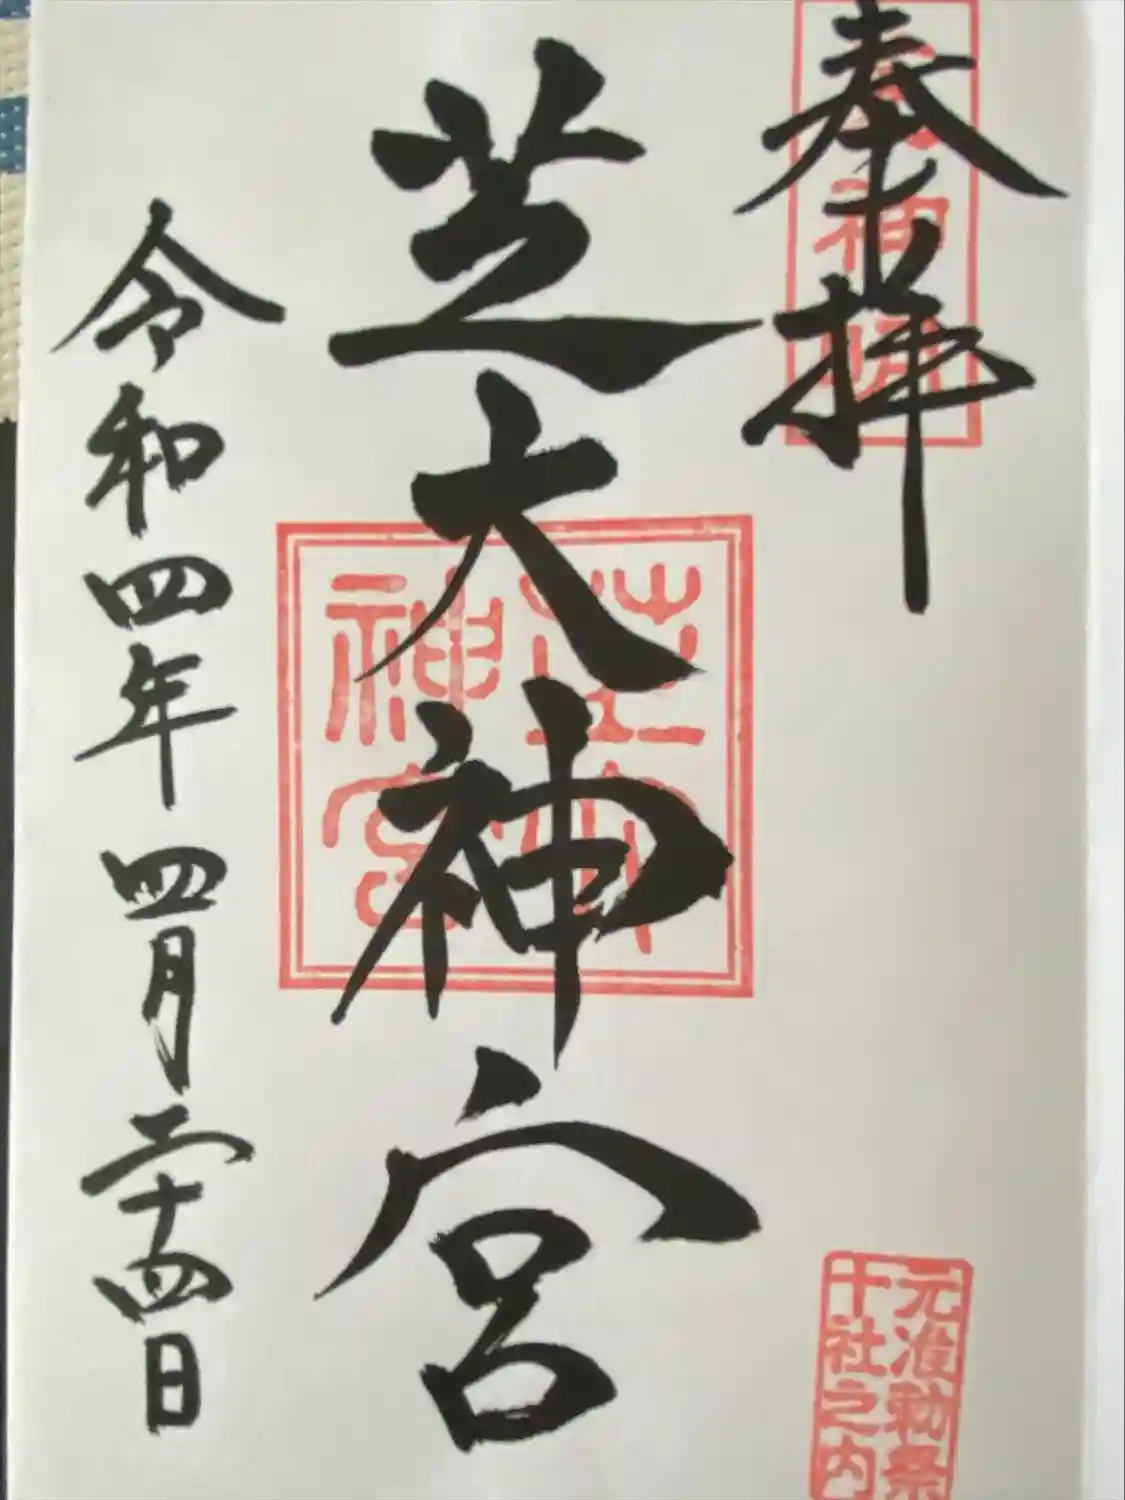 奉拝
芝大神宮
芝大
神宮
元准勅祭
十社之内
令和四年四月二十四日